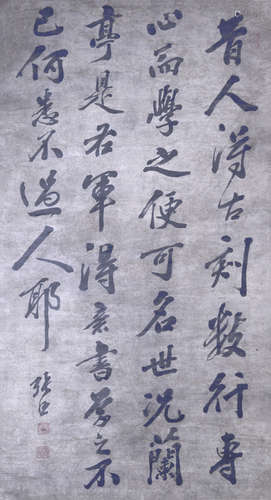 昔人得古刻數行專
心而學之便可名世況蘭
亭是右軍得意書學之不
已何患不過人耶 張照